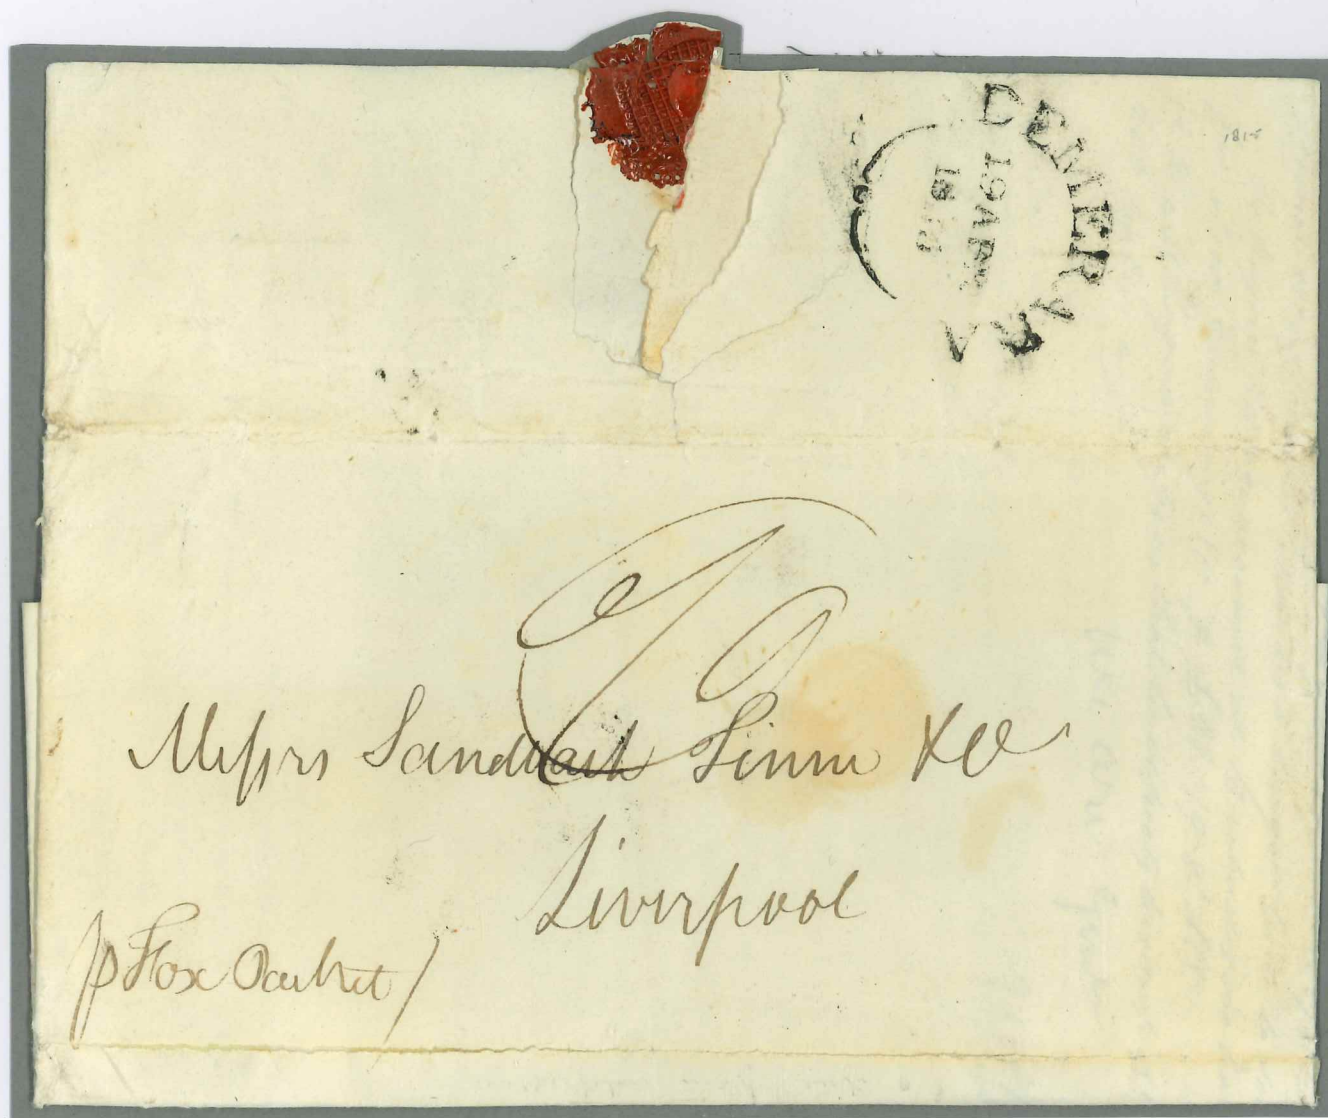 DEMERARA
19 AP
1815
Messrs Sandbach Tinne & Co
Liverpool
p Fox Packet /